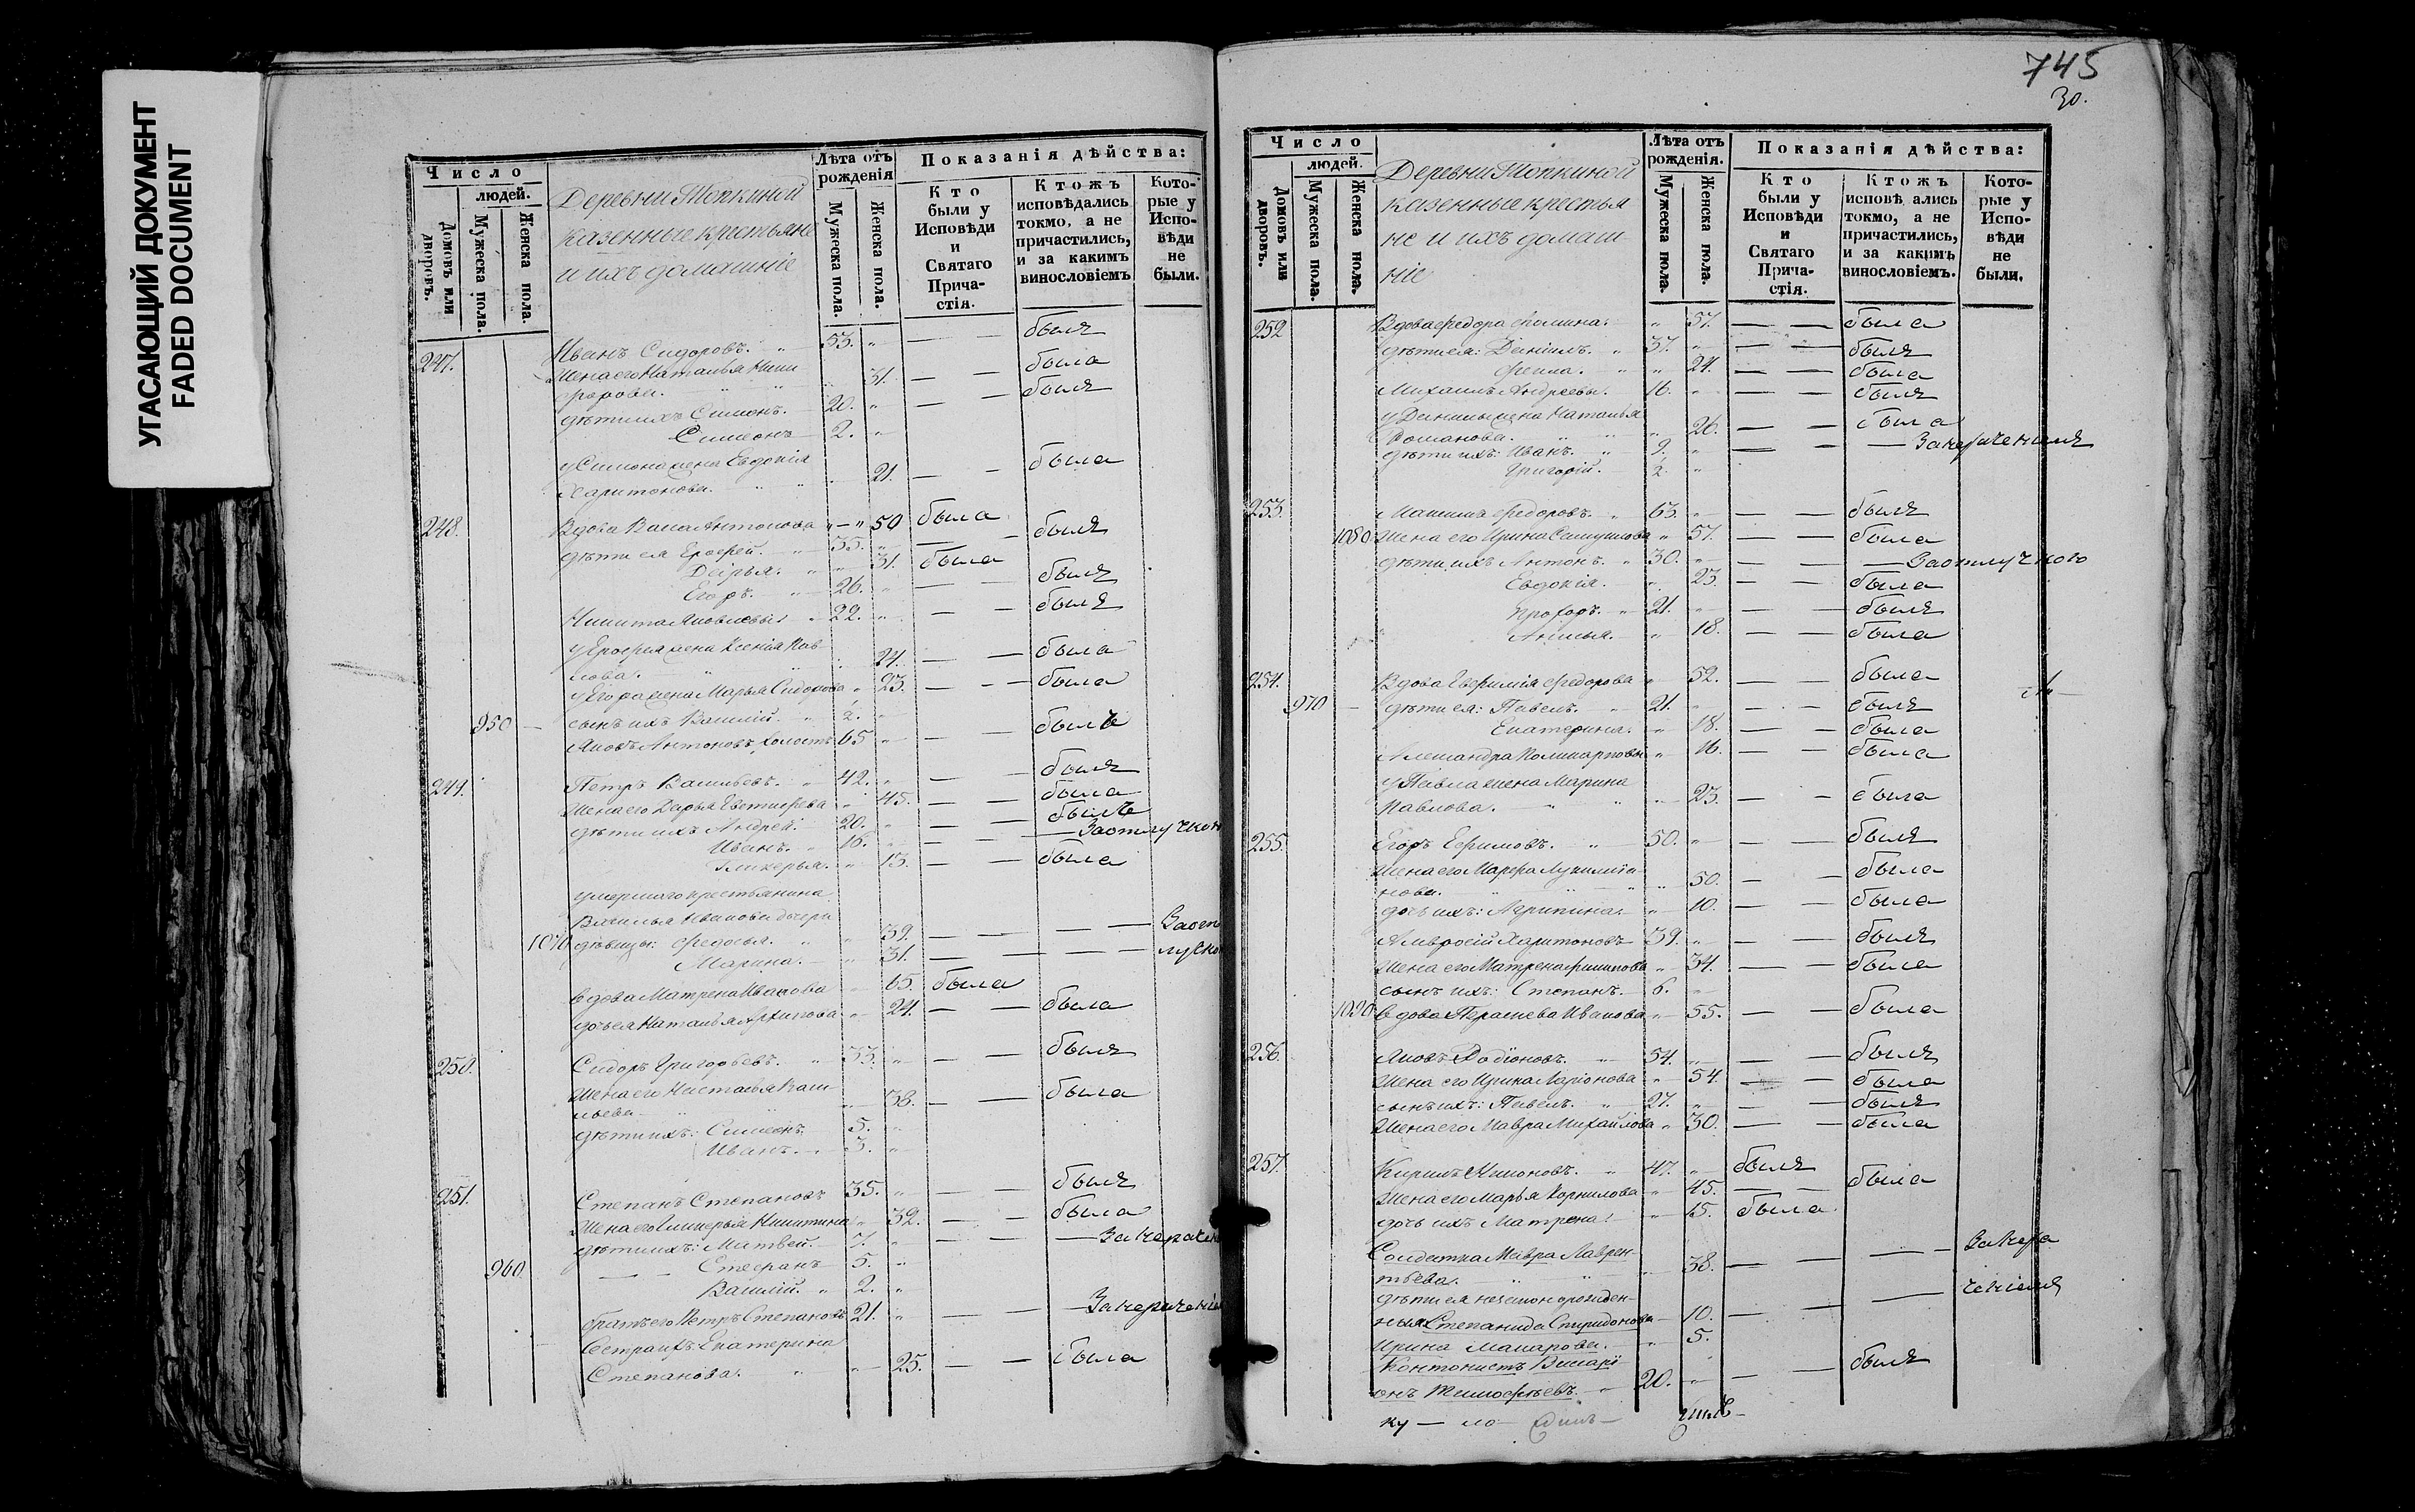 УГАСАЮЩИЙ ДОКУМЕНТ
FADED DOCUMENT
Число
людей.
Домовъ или дворовъ.
Мужеска пола.
Женска пола.
Деревни Топкиной
казенные крестьяне
и ихъ домашніе
Лѣта отъ рожденія
Мужеска пола.
Женска пола.
Показанія дѣйства:
Кто были у Исповѣди и Святаго Прича-стія.
Ктожъ исповѣдались токмо, а не причастились, и за какимъ винословіемъ
Кото-рые у Испо-вѣди не были.
247. Иванъ Сидоровъ. 53. былъ
Жена его Наталья Ники
форова. 31. была
дѣти ихъ Симонъ. 20. былъ
Симеонъ 2.
у Симона жена Евдокія
Харитонова. 21. была
248. Вдова Васа Антонова 50 была
дѣти ея Ерофей. 35. былъ
Дарья. 31. была
Егоръ. 26. былъ
Никита Яковлевы 22. былъ
у Ерофея жена Ксенія Пав
лова. 24. была
у Егора жена Марья Сидорова 23. была
950 сынъ ихъ Василій. 2.
Яковъ Антоновъ, холостъ 65 былъ
249. Петръ Васильевъ. 42. былъ
Жена его Дарья Евстифѣева 45. была
дѣти ихъ Андрей. 20. былъ
Иванъ. 16. За отлучкою
Гликерья. 13. была
умершаго крестьянина
Василья Иванова дочери
1070 дѣвицы: Федосья. 39. За от
Марина. 31. лучкою
вдова Матрена Иванова 65. была
дочь ея Наталья Архипова 24. была
250. Сидоръ Григорьевъ. 33. былъ
Жена его Настасья Васи-
льева 38. была
дѣти ихъ: Симеонъ 5.
Иванъ. 3.
251. Степанъ Степановъ 35. былъ
Жена его Гликерья Никитина 32. была
дѣти ихъ: Матвей. 7.
960 Стефанъ 5.
Василій. 2.
братъ его Петръ Степановъ 21. За нераченіем
Сестра ихъ: Екатерина
Степанова. 25. была
745
30.
Число
людей.
Домовъ или дворовъ.
Мужеска пола.
Женска пола.
Деревни Топкиной
казенные крестья
не и ихъ домаш
ніе
Лѣта отъ рожденія.
Мужеска пола.
Женска пола.
Показанія дѣйства:
Кто были у Исповѣди и Святаго Прича-стія.
Ктожъ исповѣ ались токмо, а не причастились, и за какимъ винословіемъ.
Кото-рые у Испо-вѣди не были.
252 Вдова Федора Фомина. 57. была
дѣти ея: Данiилъ. 37. былъ
Фекла. 24. была
Михаилъ Андреевы. 16. былъ
у Данилы жена Наталья
Романова. 26. была
дѣти ихъ: Иванъ. 9. За нераченіемъ
Григорій. 2.
253. Максимъ Федоровъ. 63. былъ
1080 Жена его Ирина Самуилова 57. была
дѣти ихъ Антонъ. 30. За отлучкою
Евдокія. 23. была
Прохоръ. 21. былъ
Анисья. 18. была
254. Вдова Евфимія Федорова 52. была
970 дѣти ея: Павелъ. 21. былъ
Екатерина. 18. была
Александра Поликарповы 16. была
у Павла жена Марина
Павлова. 23. была
255. Егоръ Ефимовъ. 50. былъ
Жена его Марфа Лукилліа
нова. 50. была
дочь ихъ: Агрипина. 10. была
Амвросій Харитоновъ 39. былъ
Жена его Матрена Филипова 34. была
сынъ ихъ: Степанъ. 6.
1090 вдова Параскева Иванова 55. была
256. Яковъ Родіоновъ. 54. былъ
Жена его Ирина Ларіонова 54. была
сынъ ихъ: Павелъ. 27. былъ
Жена его Мавра Михайлова 30. была
257. Кирилъ Мироновъ. 47. былъ
Жена его Марья Корнилова 45. была
дочь ихъ Матрена 15. была
Солдатка Мавра Лаврен-
тьева. 38. За нера
дѣти ея незаконорожден- ченіемъ
ныя Степанида Спиридонова 10.
Ирина Макарова. 5.
Контонистъ Висарі-
онъ Тимофѣевъ. 20. былъ